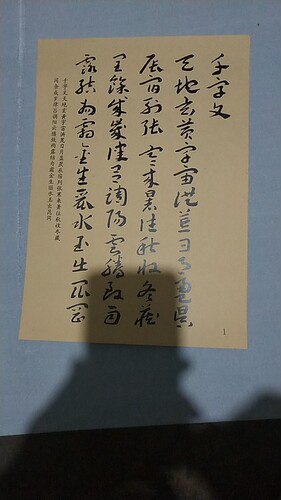 千字文
天地玄黃宇宙洪荒日月盈昃
辰宿列張寒來暑往秋收冬藏
閏餘成歲律呂調陽雲騰致雨
露結為霜金生麗水玉出崑岡
千字文天地玄黄宇宙洪荒日月盈昃辰宿列张寒来暑往秋收冬藏
闰余成岁律吕调阳云腾致雨露结为霜金生丽水玉出昆冈
1